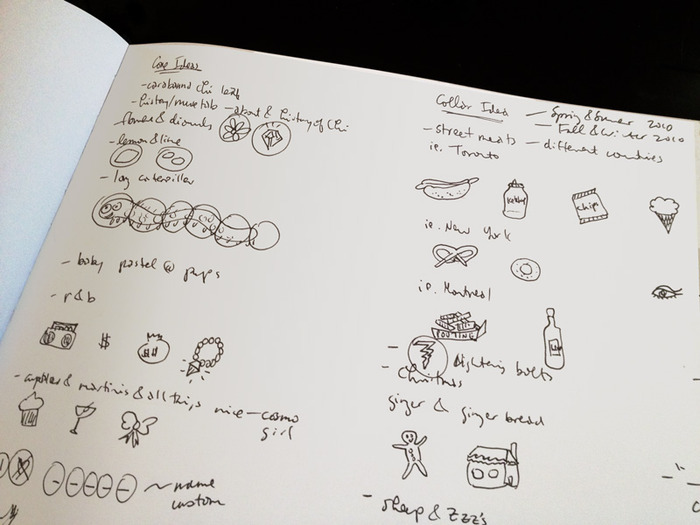 Core Ideas
- history/
- about & history of Chi
flower & diamonds
- lemon & lime
- long caterpillar
- baby pastel @ pups
- r&b
$
$$
- cupcakes & martinis & all things nice - cosmo
girl
~ name
custom
Collar Idea
- Spring & Summer 2010
- Fall & Winter 2010
- street meats
- different countries
ie. Toronto
Ketchup
chips
ie. New York
ie. Montreal
POUTINE
- lightening bolts
- Christmas
ginger & ginger bread
- sheep & Zzz's